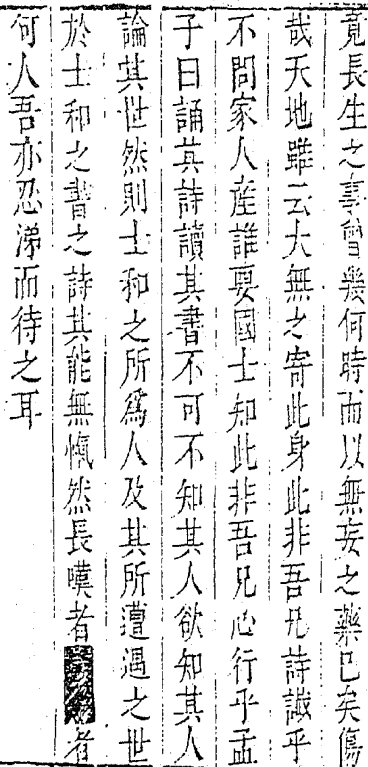 竟長生之事曾幾何時而以無妄之藥已矣傷
哉天地雖云大無之寄此身此非吾兄詩讖乎
不問家人產誰要國士知此非吾兄心行乎孟
子曰誦其詩讀其書不可不知其人欲知其人
論其世然則士和之所為人及其所遭遇之世
於士和之書之詩其能無慨然長嘆者者
何人吾亦忍涕而待之耳